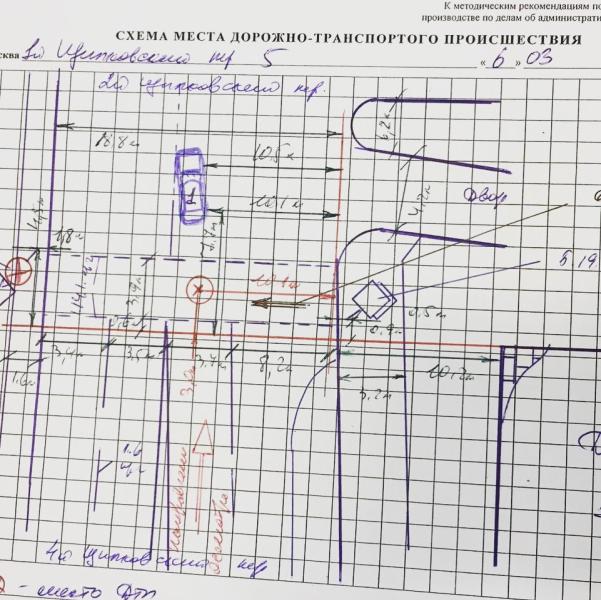 К методическим рекомендациям по
производстве по делам об административ
СХЕМА МЕСТА ДОРОЖНО-ТРАНСПОРТНОГО ПРОИСШЕСТВИЯ
сква 1й Щипковский пер 5 « 6 » 03
2й Щипковский пер.
18.8м
6,2м
10.5м
4,2м
Двор
1
10.1м
7.7м
1,8м
1.14.1
3,9м
10.1м
5.19
0.5м
0.6м
0.9м
3,4м 3,5м 3.4м 8,2м
1.6м
3,2м 10.2м
1.6
направление
осмотра
4й Щипковский пер
- место ДТП